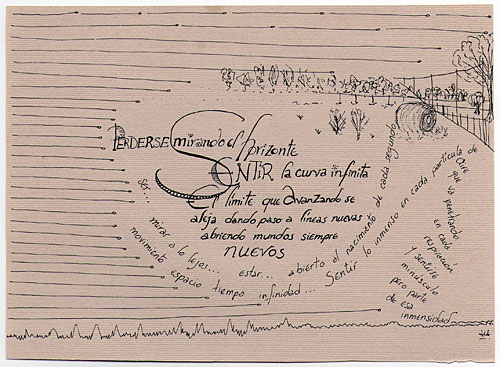 PERDERSE mirando el horizonte
SENTIR la curva infinita
El límite que avanzando se
aleja dando paso a líneas nuevas
abriendo mundos siempre
NUEVOS
ser... mirar a lo lejos... estar... abierto al nacimiento de cada segundo
movimiento espacio tiempo infinidad... Sentir lo inmenso en cada partícula de aire
que va penetrando
en cada
respiración
y sentirte
minúsculo
pero parte
de esa
inmensidad